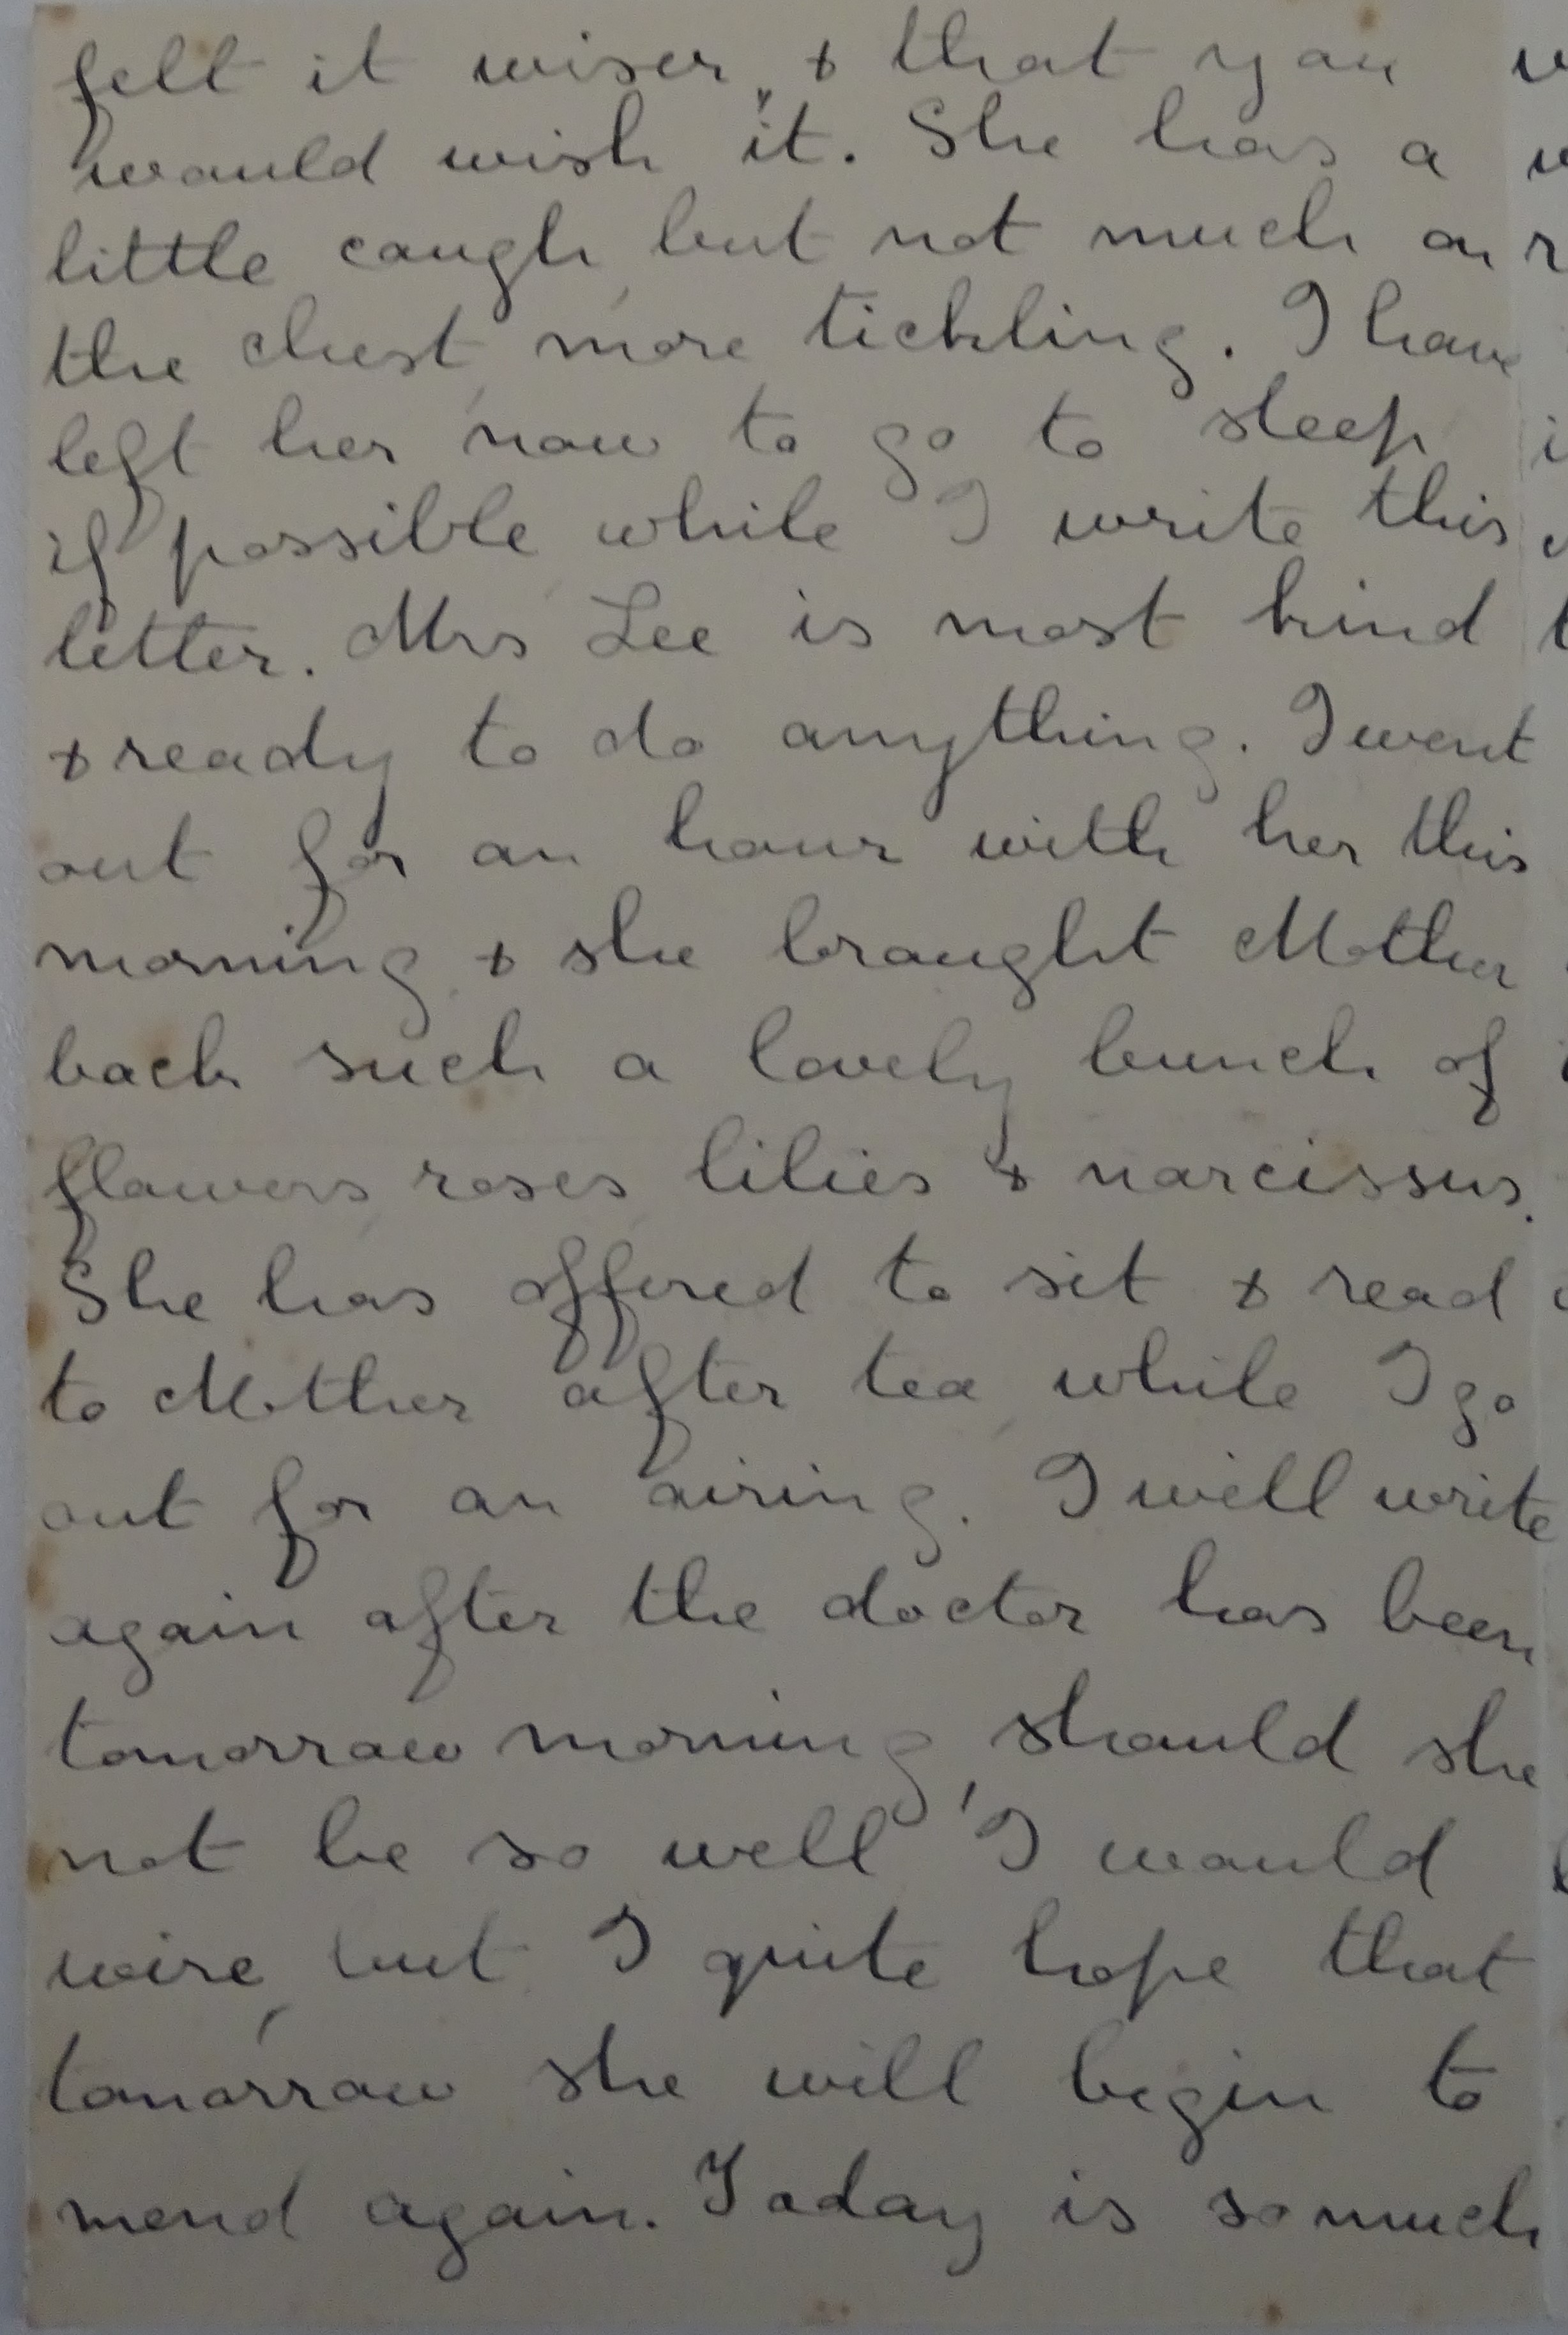 felt it wiser, & that you
would wish it. She has a
little cough, but not much on
the chest, more tickling. I have
left her now to go to sleep
if possible while I write this
letter. Mrs Lee is most kind
& ready to do anything. I went
out for an hour with her this
morning & she brought Mother
back such a lovely bunch of
flowers, roses, lilies & narcissus.
She has offered to sit & read
to Mother after tea, while I go
out for an airing. I will write
again after the doctor has been
tomorrow morning, should she
not be so well I would
wire, but I quite hope that
tomorrow she will begin to
mend again. Today is so much